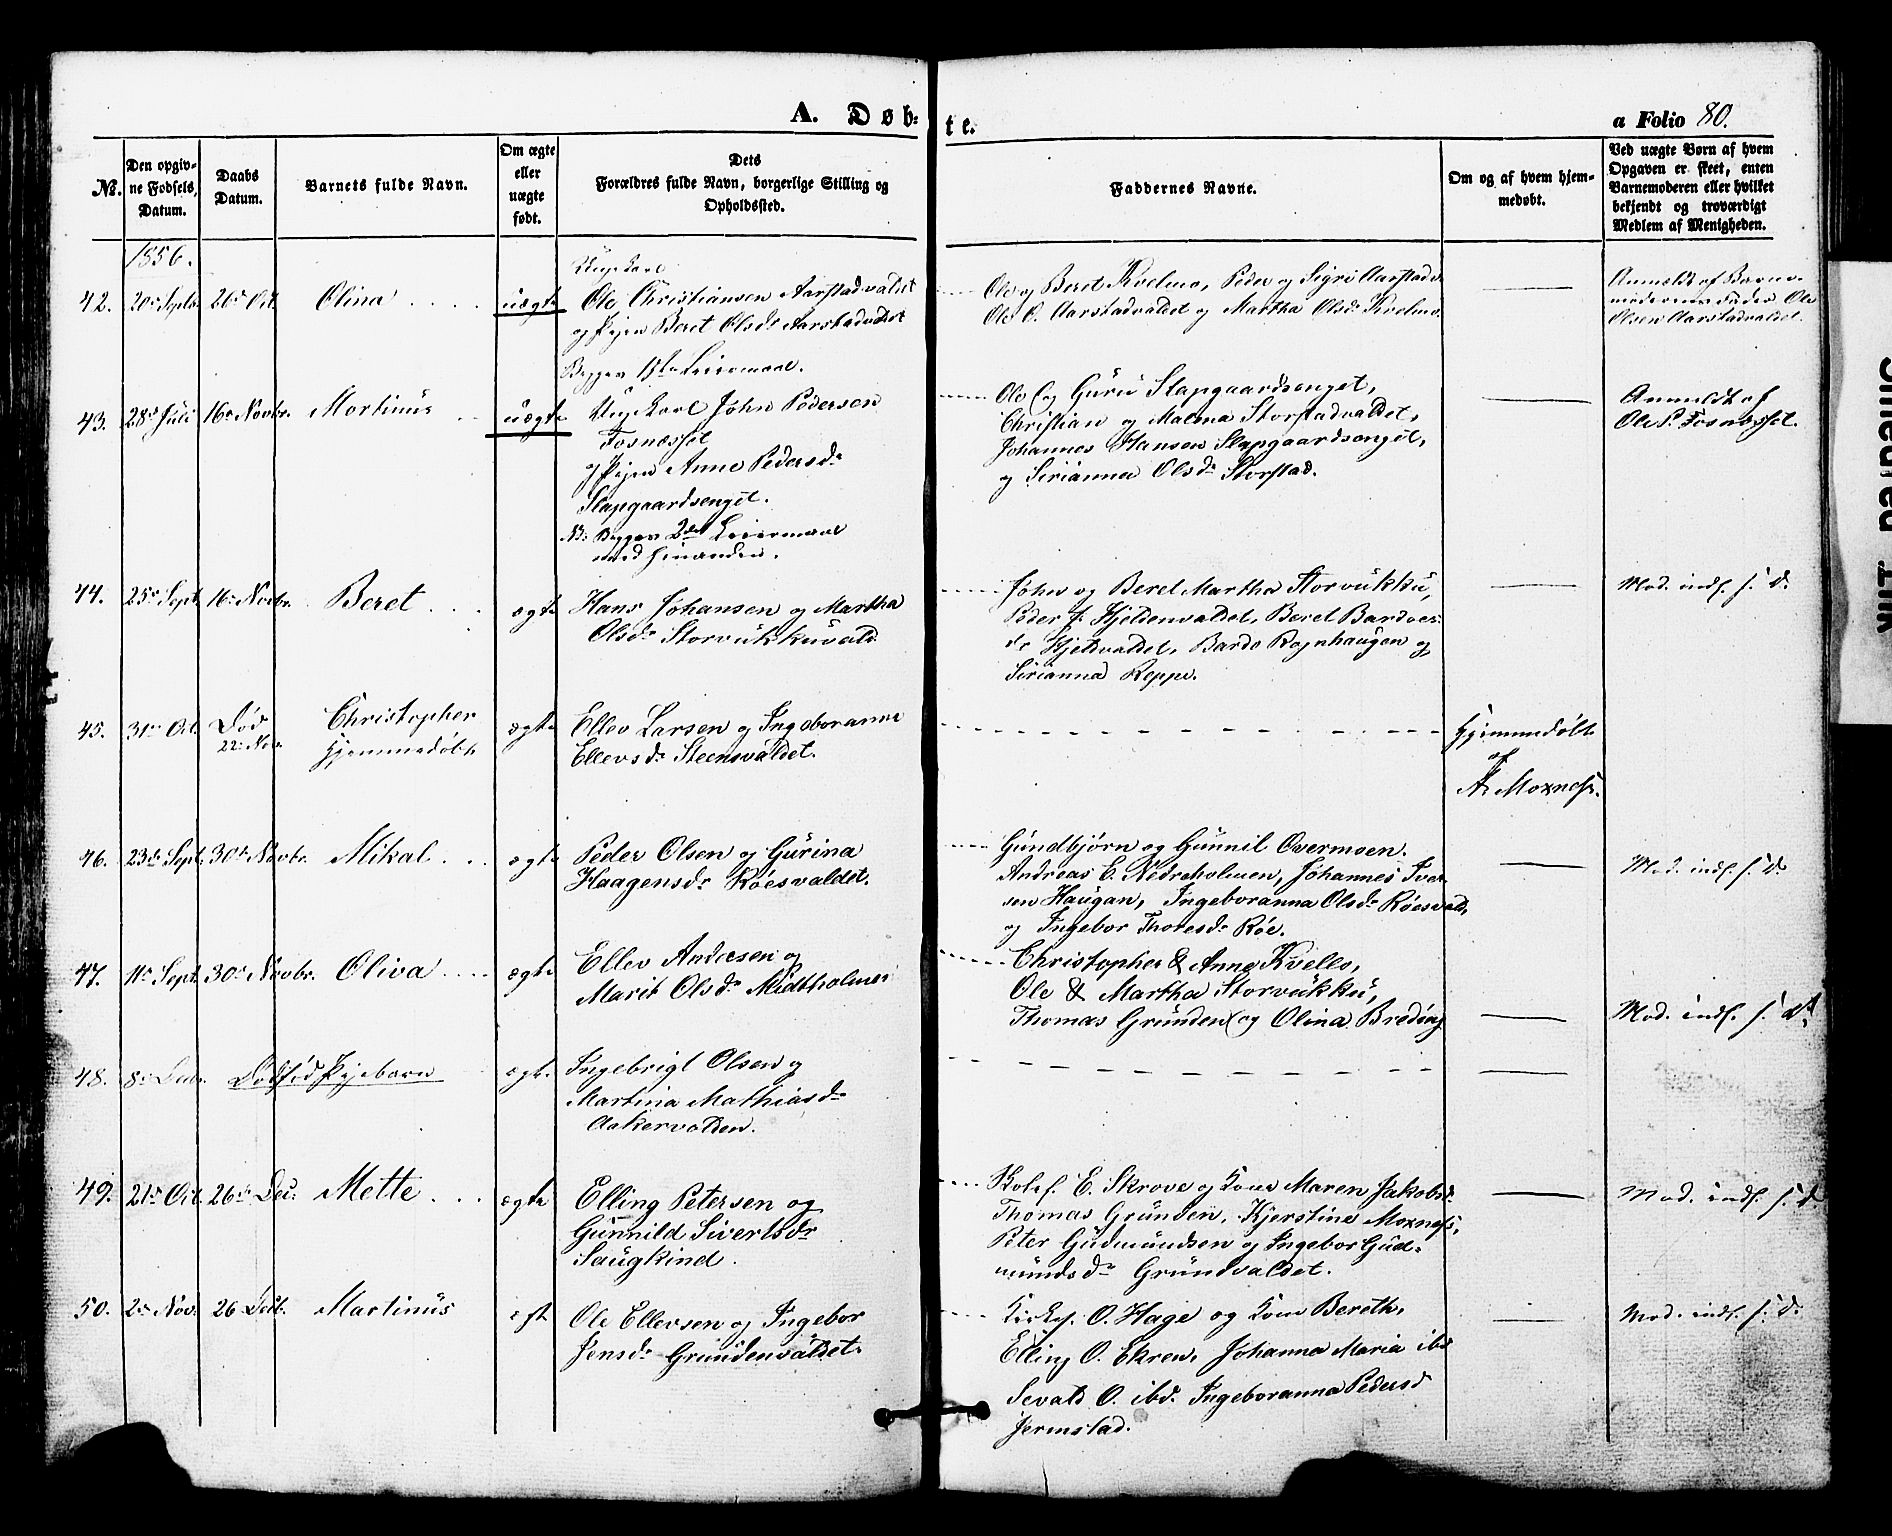 A. Døb- te.
a Folio 80.
No.
Den opgiv-
ne Fødsels-
Datum.
Daabs
Datum.
Barnets fulde Navn.
Om ægte
eller
uægte
født.
Dets
Forældres fulde Navn, borgerlige Stilling og
Opholdssted.
Faddernes Navne.
Om og af hvem hjem-
medøbt.
Ved uægte Børn af hvem
Opgaven er skeet, enten
Barnemoderen eller hvilket
bekjendt og troværdigt
Medlem af Menigheden.
1856.
42. 20de Septbr 26de Oct Olina uægte
Ungkarl
Ole Christiansen Aarstadvaldet
og Pigen Beret Olsdr Aarstadvaldet
Begges 1ste Leiermaal.
Ole og Beret Kvelmo, Peder og Sigri Aarstadv.
Ole C. Aarstadvaldet og Martha Olsdr Kvelmo.
Anmeldt af Barne-
moderens Fader Ole
Olsen Aarstadvaldet.
43. 28de Juli 16de Novbr. Mortinus uægte
Ungkarl John Pedersen
Fosnæsset
og Pigen Anne Pedersdr
Slapgaardsenget.
NB. Begges 2det Leiermaal
med hinanden.
Ole og Guru Slapgaardsenget,
Christian og Malena Storstadvaldet,
Johannes Hansen Slapgaardsenget,
og Sirianna Olsdr Storstad.
Anmeldt af
Ole P. Fosnæsset.
44. 25de Sept. 16de Novbr. Beret ægte
Hans Johansen og Martha
Olsdr Storvukkuvald
John og Beret Martha Storvukku,
Peder J. Hjeldenvaldet, Beret Bardoes-
dr Hjeldvaldet, Bardo Rognhaugen og
Sirianna Reppe.
Mod. indl. s. D.
45. 31te Oct. Død
22de Nov. Christopher
hjemmedøbt ægte
Ellev Larsen og Ingeboranna
Ellevsdr Steensvaldet.
Hjemmedøbt
af
A. Moxness.
46. 23de Sept. 30te Novbr. Mikal ægte
Peder Olsen og Gurina
Haagensdr Röesvaldet.
Gundbjørn og Gunnil Overmoen.
Andreas E. Nedreholmen, Johannes Iver-
sen Haugan, Ingeboranna Olsdr Röesvald,
og Ingebor Thoresdr Röe.
Mod. indl. s. D
47. 11te Sept 30te Novbr. Oliva ægte
Ellev Andersen og
Marit Olsdr Midtholmen
Christopher & Anne Kvello,
Ole & Martha Storvukku,
Thomas Grunden og Olina Breding
Mod. indl. s. D.
48. 8de Decbr. Dødfød Pigebarn ægte
Ingebrigt Olsen og
Martina Mathiasdr
Aakervolden.
49. 21de Oct. 26de Dec. Mette ægte
Elling Petersen og
Gunnild Sivertsdr
Saugkind.
Skolel. E. Skrove og Kone Maren Jakobsd.
Thomas Grunden, Kjerstine Moxness,
Peter Gudmundsen og Ingebor Gud-
mundsdr Grundvaldet.
Mod. indl. s. D.
50. 2de Nov. 26 Decb. Martinus ægt
Ole Ellevsen og Ingebor
Jensdr Grundenvaldet.
Kirkes. O. Hage og Kone Bereth,
Elling O. Ekren, Johanna Maria ibd
Sevald O. ibd. Ingeboranna Pedersd
Jermstad.
Mod. indl. s. D.